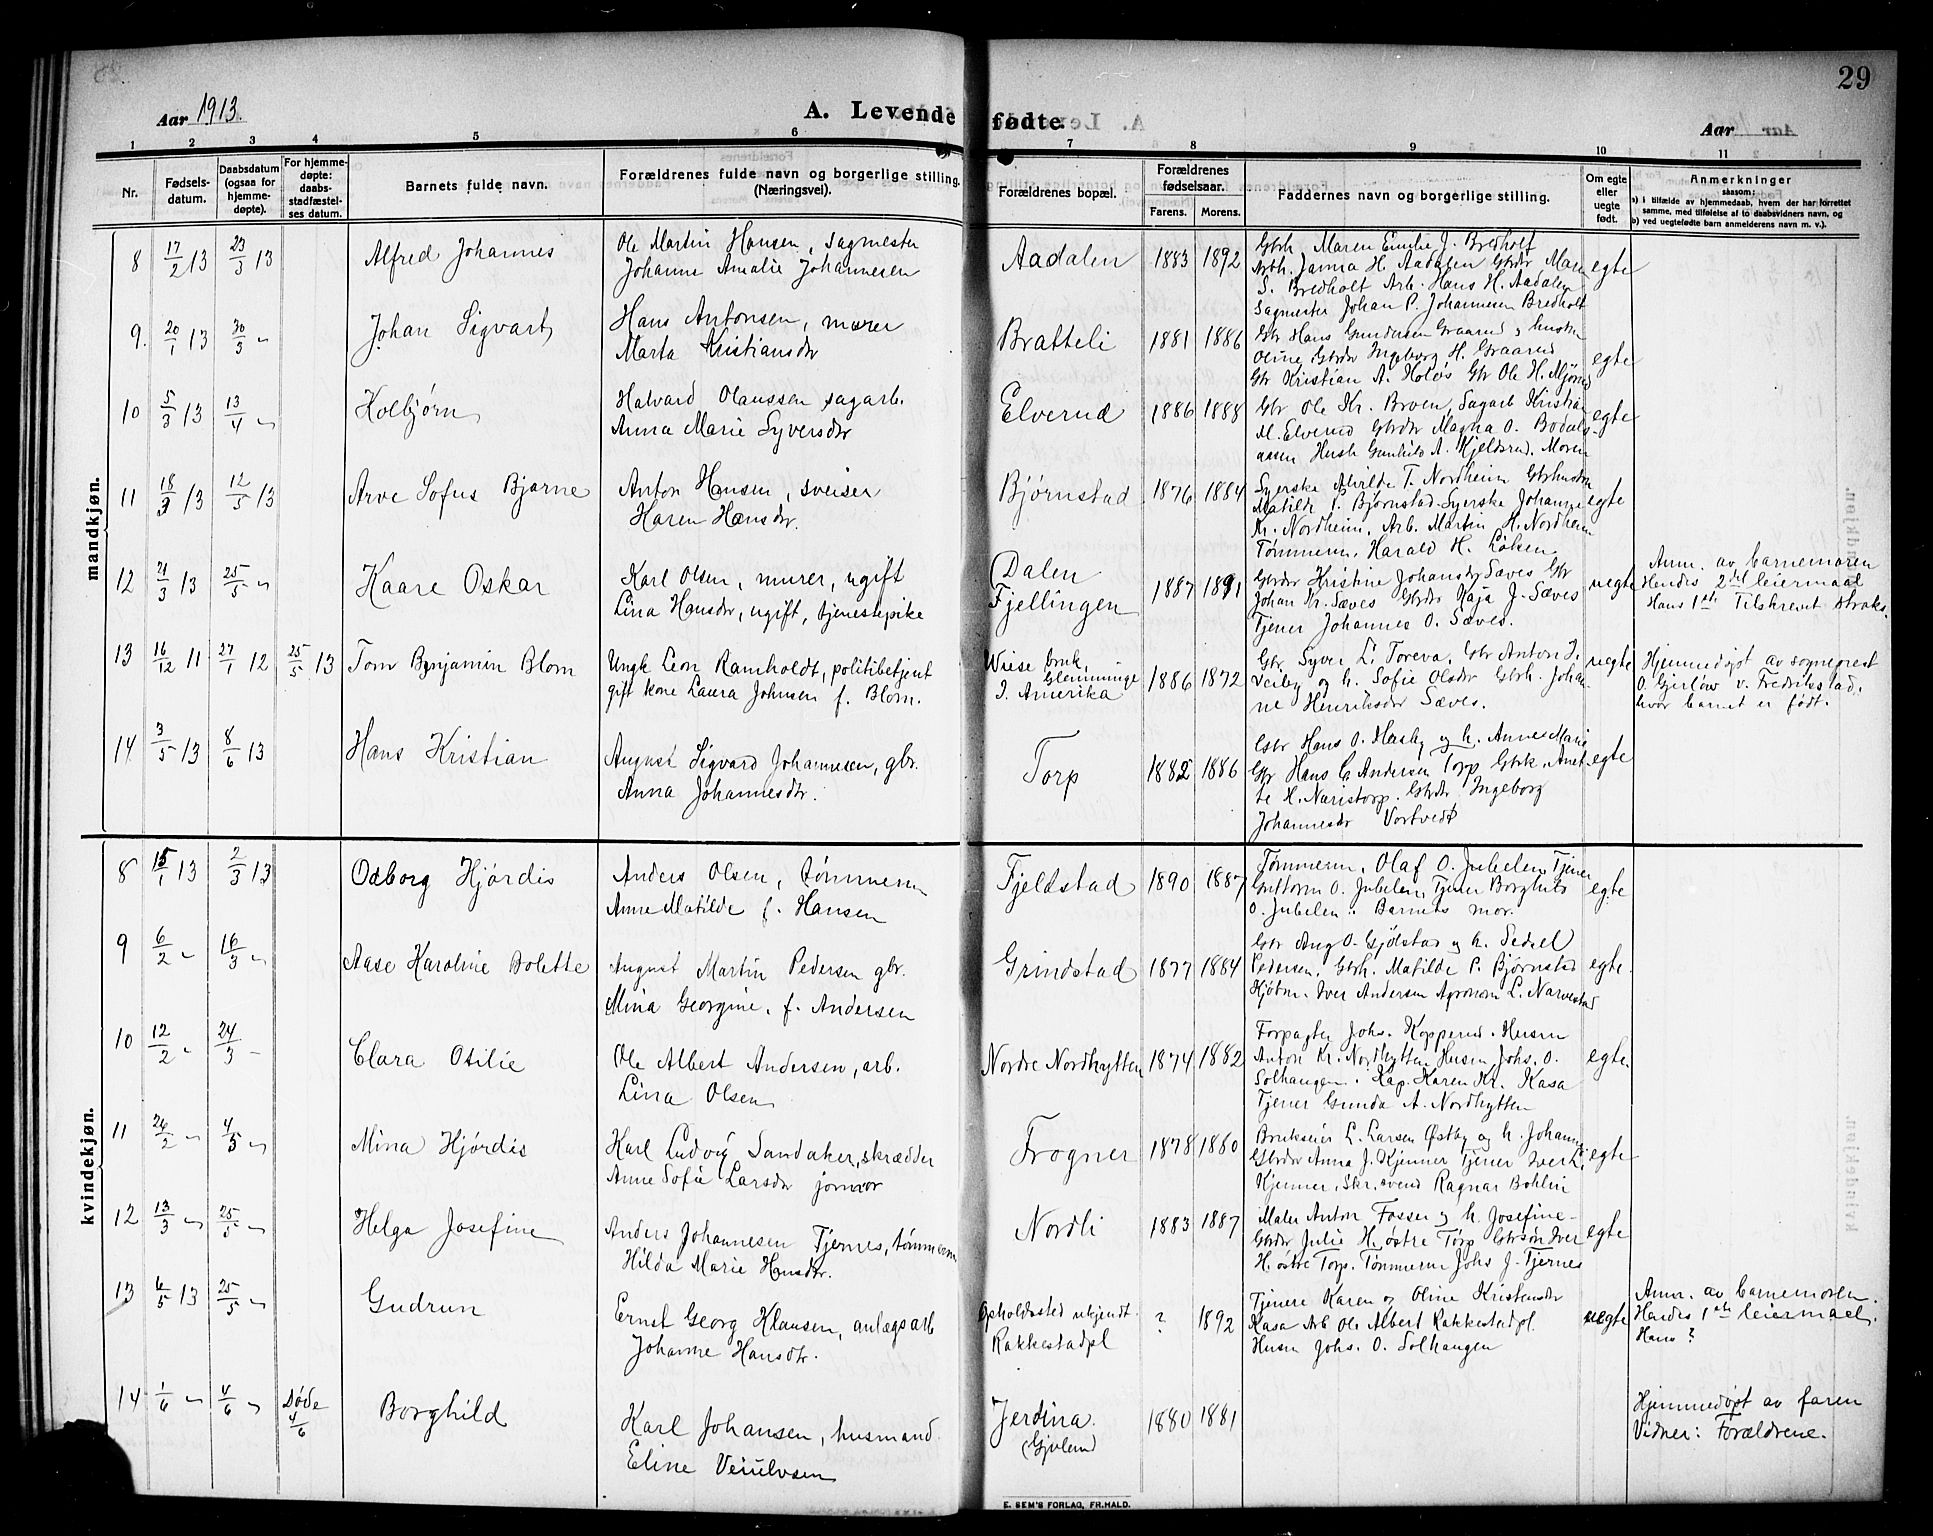 29
Aar 1913.
A. Levende fødte.
Aar
1 2 3 4 5 6 7 8 9 10 11
Nr.
Fødsels-
datum.
Daabsdatum
(ogsaa for
hjemme-
døpte).
For hjemme-
døpte:
daabs-
stadfæstel-
ses datum.
Barnets fulde navn.
Forældrenes fulde navn og borgerlige stilling.
(Næringsvei).
Forældrenes bopæl.
Forældrenes
fødselsaar.
Farens. Morens.
Faddernes navn og borgerlige stilling.
Om egte
eller
uegte
født.
Anmerkninger
saasom:
a) i tilfælde av hjemmedaab, hvem der har forrettet
samme, med tilføielse af to daabsvidners navn, og
b) ved uegtefødte barn anmelderens navn m. v.).
mandkjøn.
8 17/2 13 23/3 13 Alfred Johannes
Ole Martin Hansen, sagmester
Johanne Amalie Johannesen
Aadalen 1883 1892
Gbrh. Maren Emilie J. Bredholt
Arbh. Janna H. Aadalen Gbrdr Maren
S. Bredholt Arb. Hans H. Aadalen
Sagmester Johan P. Johannesen Bredholt
egte
9. 20/1 13 30/3 " Johan Sigvart
Hans Antonsen, murer
Marta Kristiansdr
Bratteli 1881 1886
Gbr Hans Gundersen Graarud og hustru
Oline Gbrdr Ingeborg H. Graarud
Gbr Kristian A. Holøs Gbr Ole H. Mjørud
egte
10 5/3 13 13/4 " Kolbjørn
Halvard Olaussen sagarb.
Anna Marie Syversdr
Elverud 1886 1888
Gbr Ole Kr. Broen, Sagarb Kristian
M. Elverud Gbrdr Magna O. Bodals-
aasen Hush Gunhild A. Kjeldsrud. Moren
egte
11 18/3 13 12/5 13 Arve Sofus Bjarne
Anton Hansen, sveiser
Karen Hansdr.
Bjørnstad 1876 1884
Syerske Alvilde T. Nordheim Gbrhustru
Matilde P. Bjørnstad Syerske Johanne
Kr. Nordheim, Arb. Martin H. Nordheim
Tømmerm. Harald H. Løken
egte
12 21/3 13 25/5 " Kaare Oskar
Karl Olsen, murer, ugift
Lina Hansdr, ugift, tjenestepike
Dalen
Fjellingen 1887 1891
Gbrdr Kristine Johansdr Sæves Gbr
Johan Kr. Sæves Gbrdr Kaja J. Sæves
Tjener Johannes O. Sæves.
uegte
Anm. av barnemoren
Hendes 2det leiermaal
Hans 1ste Tilskrevet straks.
13 16/12 11 27/1 12 25/5 13 Tom Benjamin Blom
Ungk Leon Ramholdt, politibetjent
gift kone Laura Johnsen f. Blom.
Wiese bruk,
Glemminge
I. Amerika 1886 1872
Gbr. Syver L. Toreva, Gbr Anton J.
Veiby og h. Sofie Olsdr Gbrh. Johan-
ne Henriksdr Sæves.
uegte
Hjemmedøpt av sogneprest
O. Gjerløw v. Fredrikstad,
hvor barnet er født.
14 3/5 13 8/6 13 Hans Kristian
August Sigvard Johannesen, gbr.
Anna Johannesdr.
Torp 1882 1886
Gbr Hans O. Hasby og h. Anne Marie
Gbr Hans C Andersen Torp Gbrk. Anet-
te H. Naristorp. Gbrdr Ingeborg
Johannesdr Vortvedt
egte
kvindekjøn.
8 15/1 13 2/3 13 Odborg Hjørdis
Anders Olsen, tømmerm
Anne Matilde f. Hansen
Fjeldstad 1890 1887
Tømmerm. Olaf O. Jubelen, Tjener
Guttorm O. Jubelen, Tjener Borghild
O. Jubelen. Barnets mor.
egte
9 6/2 " 16/3 " Aase Karoline Bolette
August Martin Pedersen gbr.
Mina Georgine, f. Andersen
Grindstad 1877 1884
Gbr Aug O. Gjølstad og h. Sedsel
Pedersen, Gbrh. Matilde P. Bjørnstad
Kjøbm. Iver Andersen Agronom L. Narvestad
egte.
10 12/2 " 24/3 " Clara Otilie
Ole Albert Andersen, arb.
Lina Olsen
Nordre Nordhytten 1874 1882
Forpagter Johs. Kopperud. Husm
Anton Kr. Nordhytten Husm Johs. O.
Solhaugen. Kap. Karen Kr. Kasa
Tjener Gunda A. Nordhytten
egte.
11 26/2 " 4/5 " Mina Hjørdis
Karl Ludvig Sandaker, skrædder
Anne Sofie Larsdr jormor
Frogner 1878 1880
Brukseier L. Larsen Østby og h. Johanne
Gbrdr Anna J. Kjenner Tjener Iver L.
Kjenner, Skr. svend Ragnar Bohlin
egte
12 13/3 " 25/5 " Helga Josefine
Anders Johannesen Tjernes, tømmerm
Hilda Marie Hansdr.
Nordli 1883 1887
Maler Anton Fosser og h. Josefine
Gbrdr Julie H. østre Torp Gbrsøn Iver
H. østre Torp. Tømmerm Johs J. Tjernes
egte
13 6/5 13 25/5 " Gudrun
Ernst Georg Klausen, anlægsarb
Johanne Hansdtr.
Opholdssted ukjendt.
Rakkestadpl ? 1892
Tjenere Karen og Oline Kristensdr
Kasa Arb Ole Albert Rakkestadpl.
Husm Johs. O. Solhaugen
uegte
Anm. av barnemoren.
Hendes 1ste leiermaal.
Hans ?
14 1/6 " 4/6 " Døde 4/6 Borghild
Karl Johansen, husmand.
Eline
Jerdina.
1880 1881
Hjemmedøpt av faren
Vidner: Forældrene.
E. SEM'S FORLAG, FR.HALD.